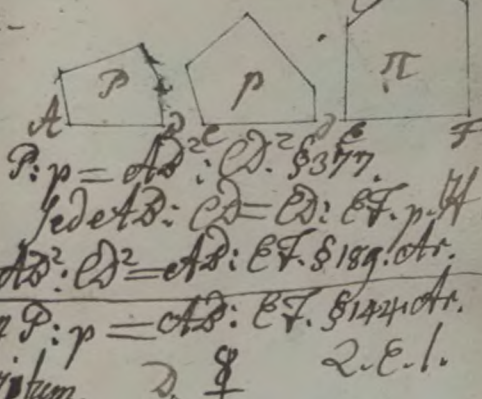 P p π
A B C D E F
P: p = AB²: CD². §377.
sed AB: CD = CD: EF. p. H
AB²: CD² = AB: EF. §189. Ar.
P: p = AB: EF. §144. Ar.
Q.E.1.